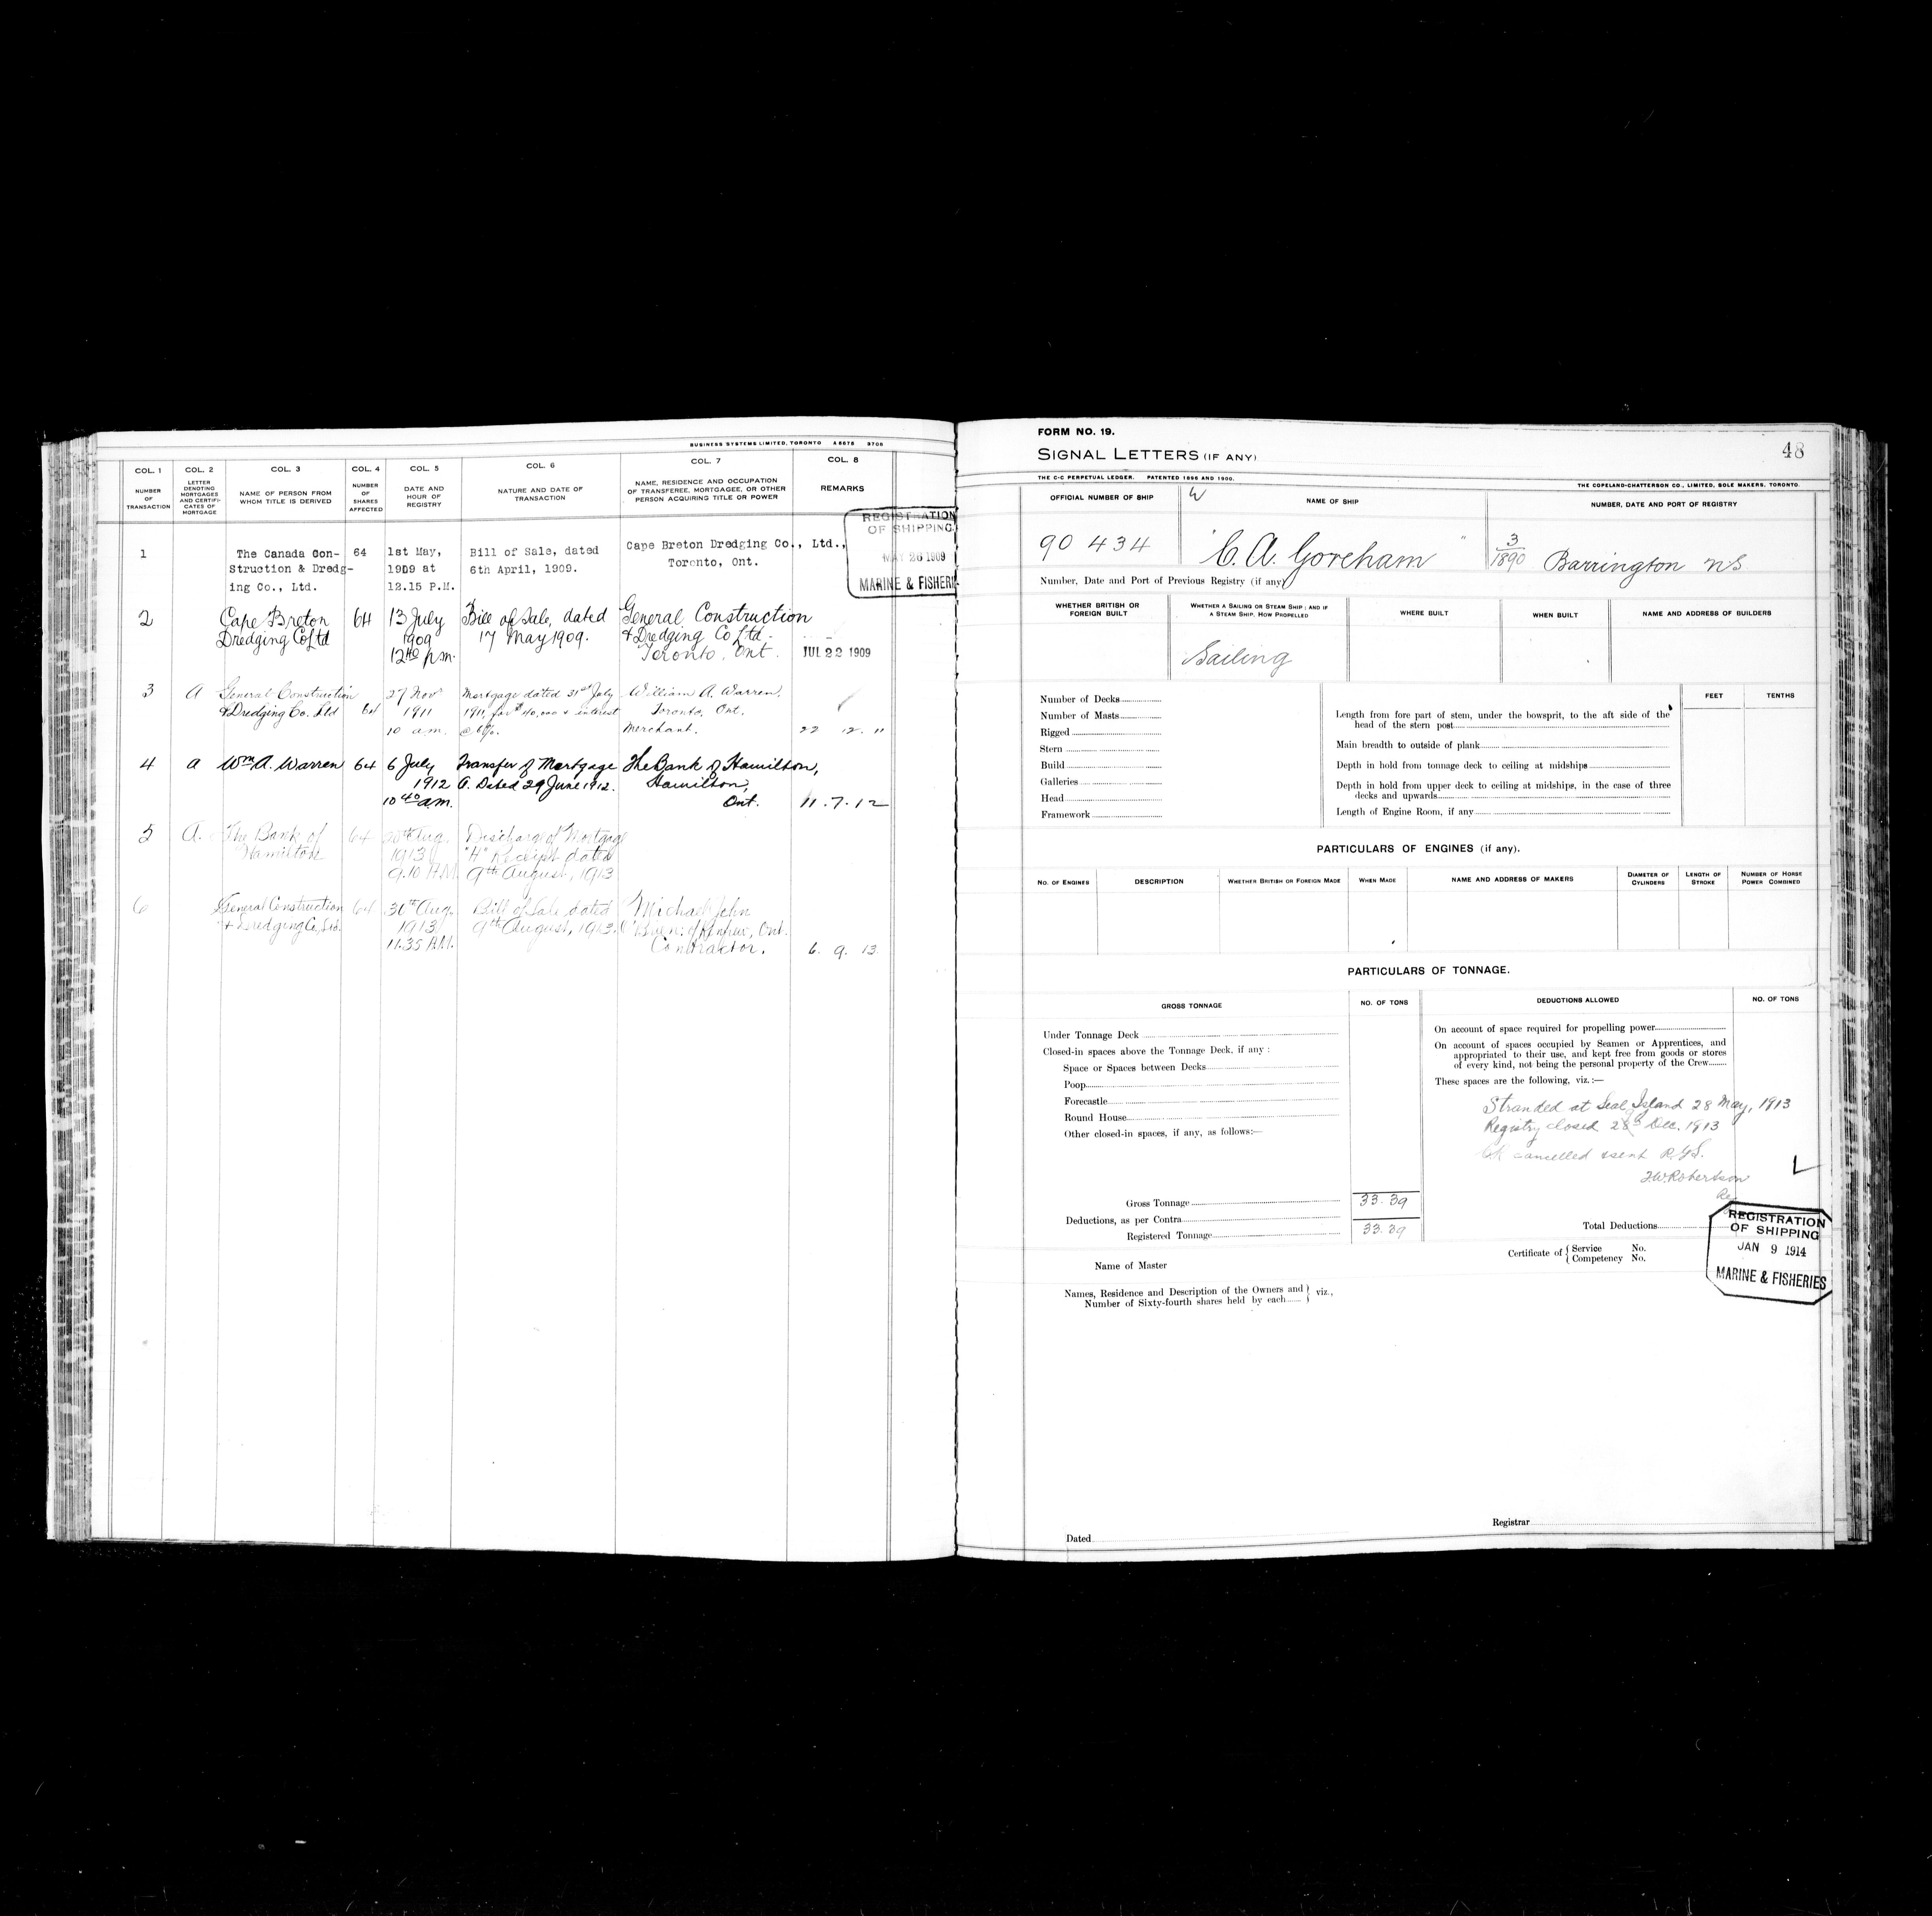 BUSINESS SYSTEMS LIMITED, TORONTO A 8678 3708
COL. 1 COL. 2 COL. 3 COL. 4 COL. 5 COL. 6 COL. 7 COL. 8
NUMBER OF TRANSACTION
LETTER DENOTING MORTGAGES AND CERTIFICATES OF MORTGAGE
NAME OF PERSON FROM WHOM TITLE IS DERIVED
NUMBER OF SHARES AFFECTED
DATE AND HOUR OF REGISTRY
NATURE AND DATE OF TRANSACTION
NAME, RESIDENCE AND OCCUPATION OF TRANSFEREE, MORTGAGEE, OR OTHER PERSON ACQUIRING TITLE OR POWER
REMARKS
REGISTRATION
OF SHIPPING
MAY 26 1909
MARINE & FISHERIES
1 The Canada Con- 64 1st May, Bill of Sale, dated Cape Breton Dredging Co., Ltd.,
struction & Dredg- 1909 at 6th April, 1909. Toronto, Ont.
ing Co., Ltd. 12.15 P.M.
2 Cape Breton 64 13 July Bill of Sale, dated General Construction
Dredging Co Ltd 1909 17 May 1909. & Dredging Co Ltd.
12 40 p.m. Toronto. Ont. JUL 22 1909
3 A General Construction 27 Nov Mortgage dated 31st July William A. Warren,
& Dredging Co. Ltd 64 1911 1911, for $40,000 & interest Toronto, Ont.
10 a.m. @ 6%. Merchant. 22 12. 11
4 A Wm A. Warren 64 6 July Transfer of Mortgage The Bank of Hamilton,
1912 A. Dated 29 June 1912. Hamilton,
10 40 a.m. Ont. 11.7.12
5 A. The Bank of 64 Aug. Discharge of Mortgage
Hamilton 1913 "A" Receipt dated
9.10 A.M. 9th August, 1913
6 General Construction 64 30th Aug. Bill of Sale dated Michael John
& Dredging Co., Ltd. 1913 9th August, 1913. O'Brien of Renfrew, Ont.
11.35 A.M. Contractor. 6. 9. 13
FORM NO. 19.
48
SIGNAL LETTERS (IF ANY)
THE C-C PERPETUAL LEDGER. PATENTED 1896 AND 1900.
THE COPELAND-CHATTERSON CO., LIMITED, SOLE MAKERS, TORONTO.
OFFICIAL NUMBER OF SHIP NAME OF SHIP NUMBER, DATE AND PORT OF REGISTRY
90 434 "C. A. Goreham" 3/1890 Barrington NS
Number, Date and Port of Previous Registry (if any)
WHETHER BRITISH OR FOREIGN BUILT
WHETHER A SAILING OR STEAM SHIP; AND IF A STEAM SHIP, HOW PROPELLED
WHERE BUILT
WHEN BUILT
NAME AND ADDRESS OF BUILDERS
Sailing
FEET TENTHS
Number of Decks
Number of Masts
Rigged
Stern
Build
Galleries
Head
Framework
Length from fore part of stem, under the bowsprit, to the aft side of the
head of the stern post
Main breadth to outside of plank
Depth in hold from tonnage deck to ceiling at midships
Depth in hold from upper deck to ceiling at midships, in the case of three
decks and upwards
Length of Engine Room, if any
PARTICULARS OF ENGINES (if any).
NO. OF ENGINES DESCRIPTION WHETHER BRITISH OR FOREIGN MADE WHEN MADE NAME AND ADDRESS OF MAKERS DIAMETER OF CYLINDERS LENGTH OF STROKE NUMBER OF HORSE POWER COMBINED
PARTICULARS OF TONNAGE.
GROSS TONNAGE NO. OF TONS DEDUCTIONS ALLOWED NO. OF TONS
Under Tonnage Deck
Closed-in spaces above the Tonnage Deck, if any :
Space or Spaces between Decks
Poop
Forecastle
Round House
Other closed-in spaces, if any, as follows:—
Gross Tonnage 33.39
Deductions, as per Contra
Registered Tonnage 33.39
On account of space required for propelling power
On account of spaces occupied by Seamen or Apprentices, and
appropriated to their use, and kept free from goods or stores
of every kind, not being the personal property of the Crew
These spaces are the following, viz.:—
Stranded at Seal Island 28 May, 1913
Registry closed 28th Dec. 1913
cancelled & sent R.G.S.
F.W. Robertson
Total Deductions
REGISTRATION
OF SHIPPING
JAN 9 1914
MARINE & FISHERIES
Name of Master
Certificate of { Service No.
{ Competency No.
Names, Residence and Description of the Owners and } viz.,
Number of Sixty-fourth shares held by each }
Registrar
Dated